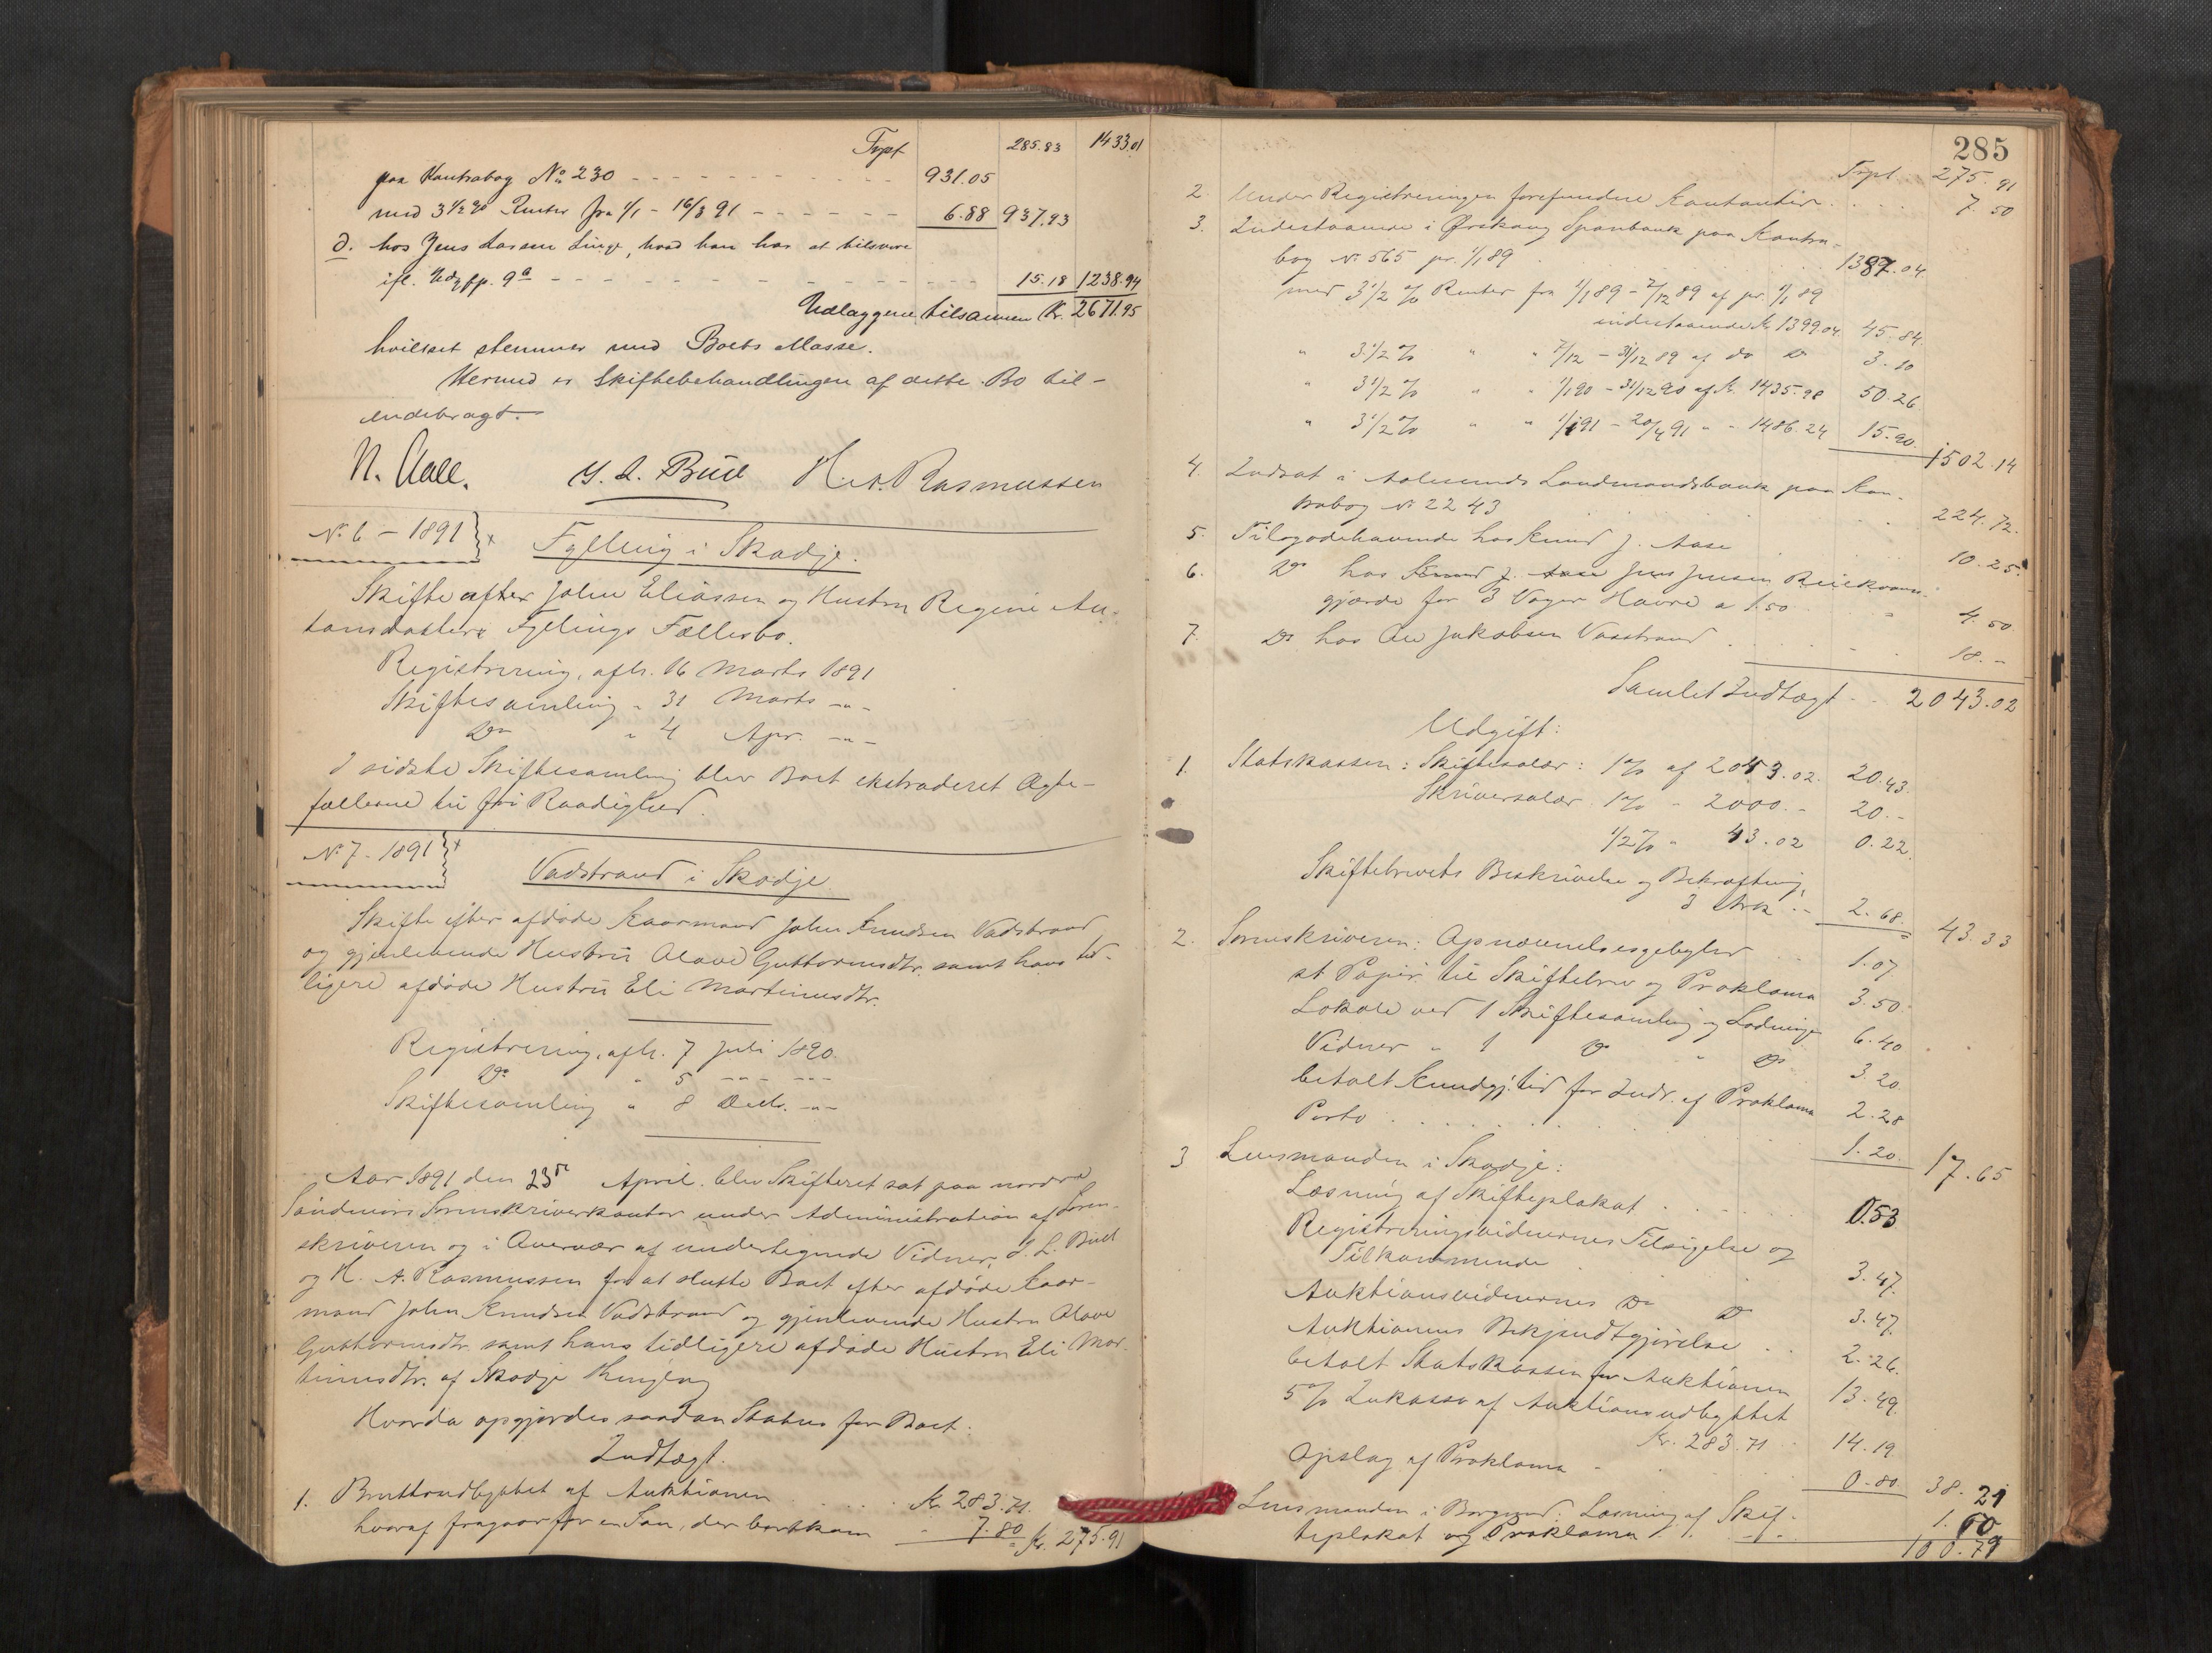 Trpt 285.83 1433.01
paa Kontrabog No 230 - - - 931.05
med 3 1/2 % Renter fra 1/1 - 16/3 91 - - - 6.88 937.93
d. hos Jens Lassen Linge, hvad han har at tilsvare
ifl. Udg pp. 9 a - - - 15.18 1238.94
Udlaggene tilsammen Kr. 2671.95
hvilket stemmer med Boets Masse.
Hermed er Skiftebehandlingen af dette Bo til-
endebragt.
N. Aall. H. A. Rasmussen
No 6 - 1891 Fylling i Skodje.
Skifte efter John Eliassen og Hustru Regine An-
tonsdatters Fyllings Fællesbo.
Registrering, afh. 16 Marts 1891
Skiftesamling " 31 Marts -"-
Do " 4 Apr. -"-
I sidste Skiftesamling blev Boet ekstraderet Ægte-
fællerne til fri Raadighed.
No 7 - 1891 Vadstrand i Skodje
Skifte efter afdøde Kaarmand John Knudsen Vadstrand
og gjenlevende Hustru Olave Guttormsdtr. samt hans tid-
ligere afdøde Hustru Eli Martinusdtr.
Registrering, afh. 7 Juli 1890
Do " 5 -"- -"-
Skiftesamling " 8 Decb. -"-
Aar 1891 den 23de April blev Skifteret sat paa nordre
Søndmørs Sorenskriverkontor under Administration af Soren-
skriveren og i Overvær af undertegnede Vidner,
og H. A. Rasmussen for at slutte Boet efter afdøde Kaar-
mand John Knudsen Vadstrand og gjenlevende Hustru Olave
Guttormsdtr. samt hans tidligere afdøde Hustru Eli Mar-
tinusdtr. af Skodje Thinglag
Hvorda opgjordes saadan Status for Boet:
Indtægt.
1. Bruttoudbyttet af Auktionen . . . . Kr. 283.71
hvoraf fragaar for en Sau, der bortkom " 7.80 Kr. 275.91
285
Trpt 275.91
2. Under Registreringen forefundne Kontanter . . . 7.50
3. Indestaaende i Ørskoug Sparebank paa Kontra-
bog No 565 pr. 1/1 89 . . . 1387.04
med 3 1/2 % Renter fra 1/1 89 - 7/12 89 af pr. 1/1 89
indestaaende Kr 1399.04 45.84
" 3 1/2 % " " 7/12 - 31/12 89 af do Do 3.10
" 3 1/2 % " " 1/1 90 - 31/12 90 af Kr. 1435.98 50.26
" 3 1/2 % " " 1/1 91 - 20/4 91 " - 1486.24 15.90 1502.14
4. Indsat i Aalesunds Landmandsbank paa Kon-
trabog No 2243 . . . 224.72
5. Tilgodehavende hos Knud J. Aase . . . 10.25
6. Do hos Knud J. Aase Jens Jensen
gjærde for 3 Voger Havre a 1.50 . . . 4.50
7. Do hos Ole Jakobsen Vasstrand . . . 18.-
Samlet Indtægt - - 2043.02
Udgift:
1. Statskassen: Skiftesalær: 1% af 2043.02. 20.43
Skriversalær 1% - 2000.- 20.-
1/2 % " 43.02 0.22
Skiftebrevets Beskrivelse og Bekræftning,
3 Ark . - 2.68 43.33
2. Sorenskriveren: Opnævnelsesgebyhr . . 1.07
st Papir til Skiftebrev og Proklama 3.50
Lokale ved 1 Skiftesamling og Lodninge 6.40
Vidner " 1 Do " Do 3.20
betalt Kundgj.tid for Indr. af Proklama 2.28
Porto . . . 1.20 17.65
3 Lensmanden i Skodje:
Læsning af Skifteplakat . . . 0.53
Registreringsvidnernes Tilsigelse og
Tilkommende . . . 3.47
Auktionsvidnernes Do Do 3.47
Auktionens Bekjendtgjørelse . . 2.26
betalt Statskassen for Auktionen 13.49
5% Inkasso af Auktionsudbyttet
Kr. 283.71 . . 14.19
Opslag af Proklama - . . . 0.80 38.21
Lensmanden i Borgund: Læsning af Skif-
teplakat og Proklama . . . 1.60
100.79